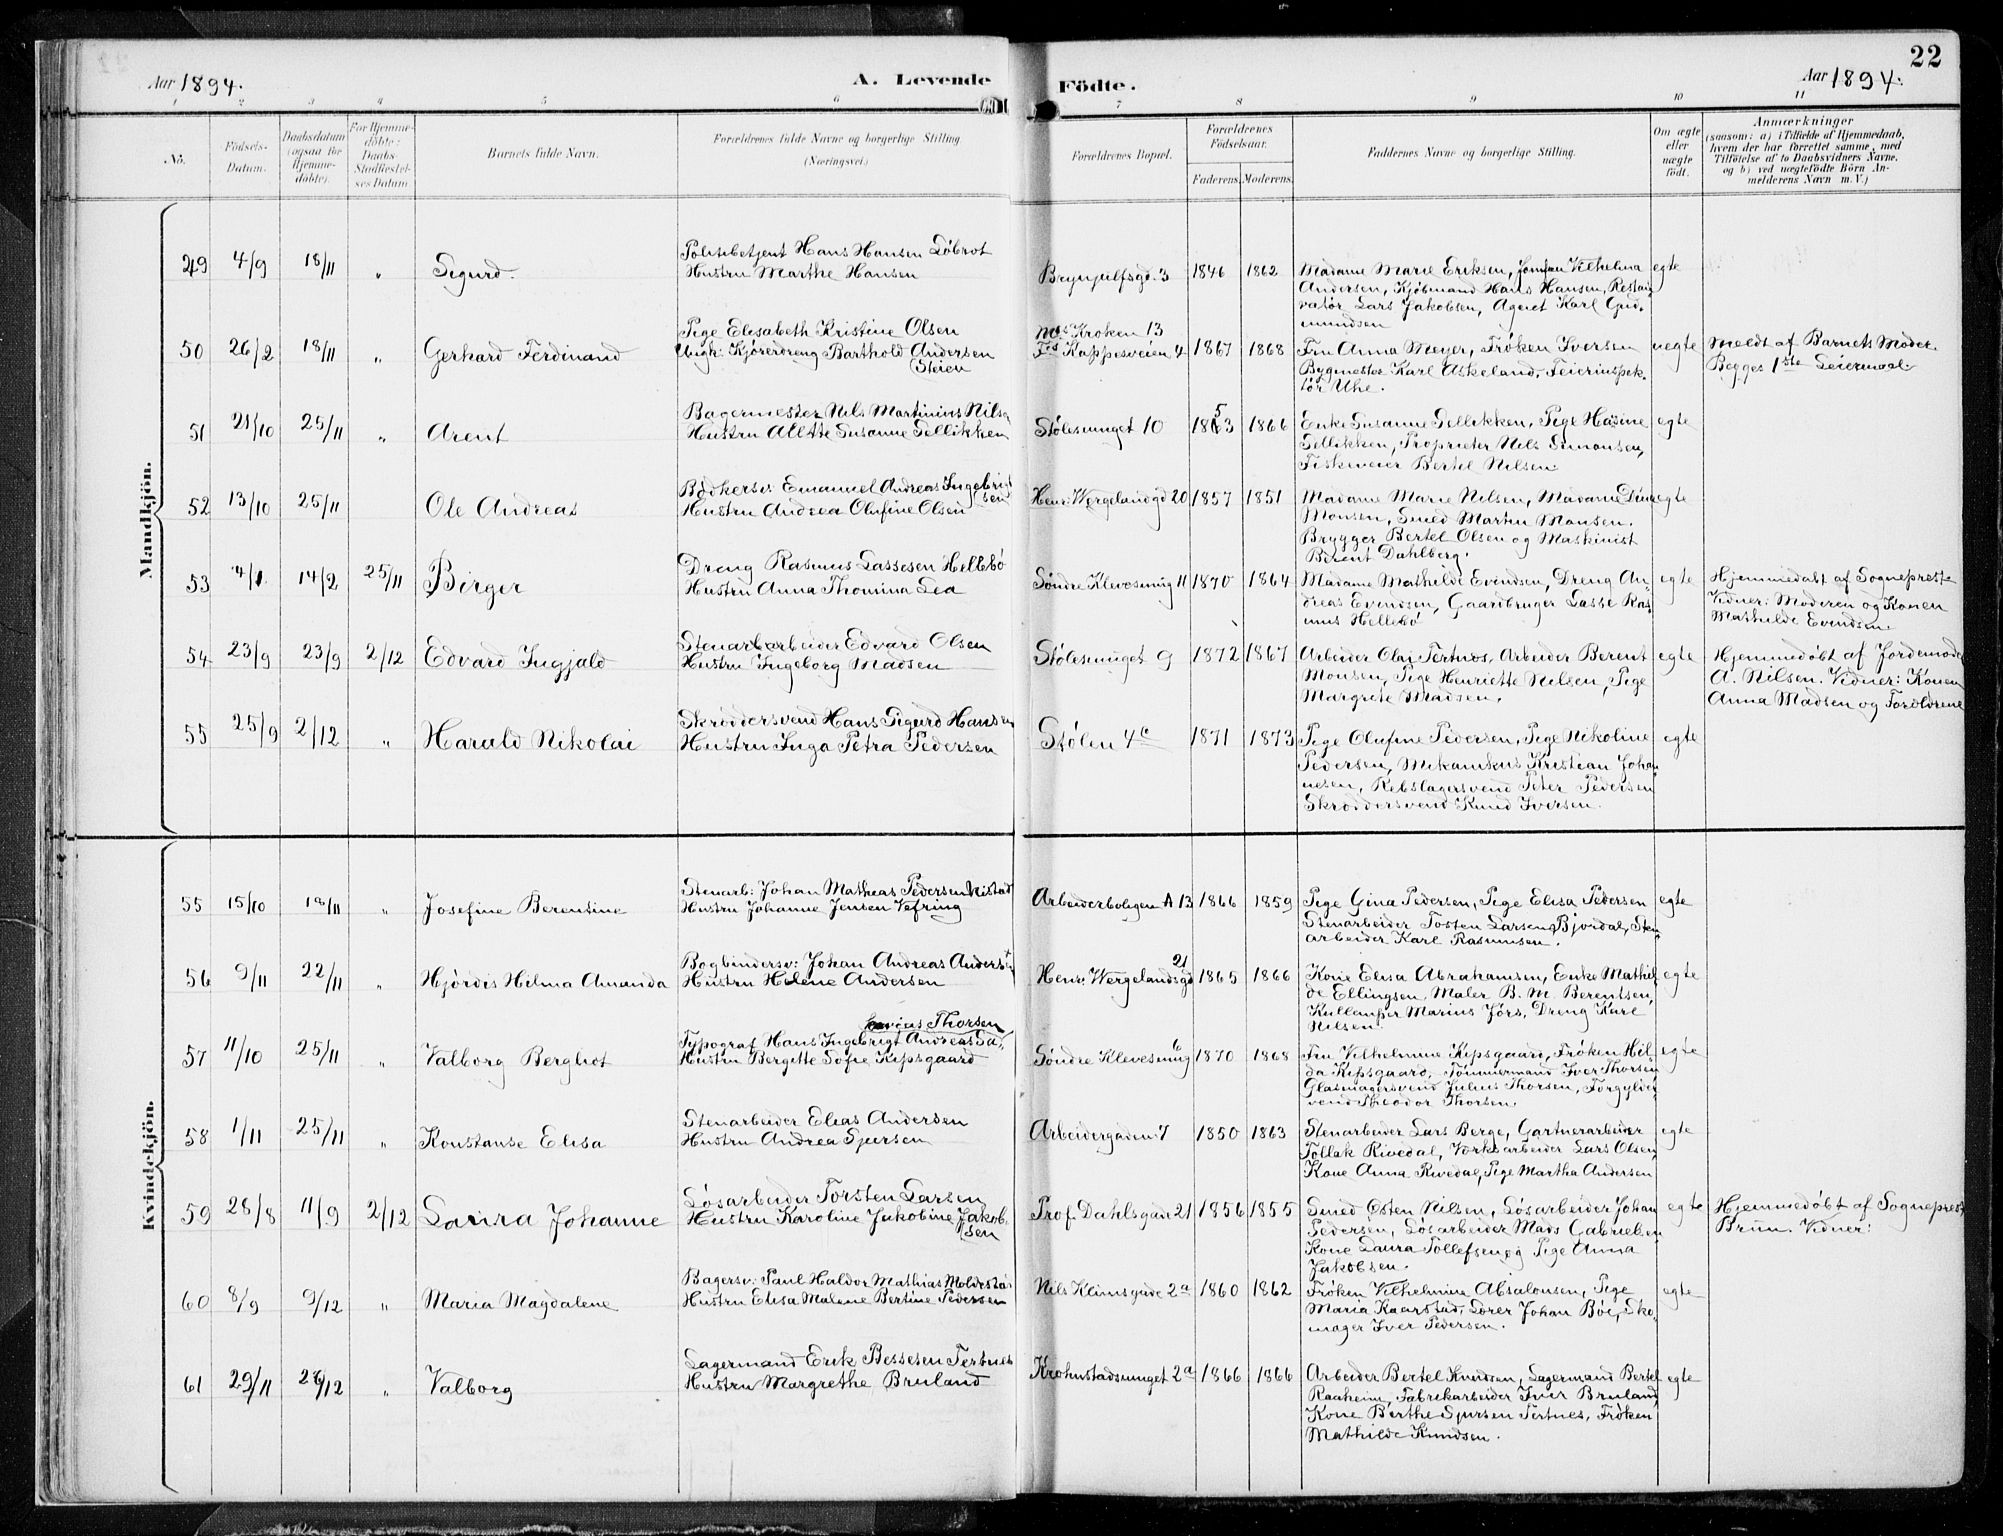 Aar 1894.
A. Levende
Födte.
Aar 1894.
22
1 2 3 4 5 6 7 8 9 10 11
No.
Födsels-
Datum.
Daabsdatum
(ogsaa for
Hjemme-
döbte).
For Hjemme-
döbte:
Daabs-
Stadfæstel-
ses Datum
Barnets fulde Navn.
Forældrenes fulde Navne og borgerlige Stilling
(Næringsvei.)
Forældrenes Bopæl.
Forældrenes
Födselsaar.
Faderens. Moderens.
Faddernes Navne og borgerlige Stilling.
Om ægte
eller
uægte
födt.
Anmærkninger
(saasom: a) i Tilfælde af Hjemmedaab,
hvem der har forrettet samme, med
Tilföielse af to Daabsvidners Navne.
og b) ved uægtefödte Börn An-
melderens Navn m.V.)
Mandkjön.
49 4/9 18/11 " Sigurd.
Politibetjent Hans Hansen Løbrot
Hustru Marthe Hansen
Brynjulfsgd. 3 1846 1862
Madame Marie Eriksen, Jomfru Vilhelmina
Andersen, Kjøbmand Hans Hansen, Restau-
ratør Lars Jakobsen, Agent Karl Gud-
mundsen
egte
50 26/2 18/11 " Gerhard Ferdinand
Pige Elisabeth Kristine Olsen
Ungk: Kjøredreng Barthold Andersen
Steien
Ms Kroken 13
Fs Kappesveien 4 1867 1868
Fru Anna Meyer, Frøken Iversen
Bygmester Karl Askeland, Feierinspek-
tør Uhe.
uegte
Meldt af Barnets Moder.
Begges 1ste Leiermaal.
51 21/10 25/11 " Arent
Bagermester Nils Martinius Nilsen
Hustru Alette Susanne Gellikken
Stølesmuget 10 1853 1866
Enke Susanne Gellikken, Pige Hasine
Gellikken, Proprietær Nils Simonsen,
Fiskeveier Bertel Nilsen.
egte
52 13/10 25/11 Ole Andreas
Bødkersv: Emanuel Andreas Ingebrigt
sen
Hustru Andrea Olufine Olsen
Henr: Wergelandsgd 20 1857 1851
Madame Marie Nilsen, Madame Dina
Monsen, Smed Martin Monsen.
Brygger Bertel Olsen og Maskinist
Berent Dahlberg.
egte
53 4/1 14/2 25/11 Birger
Dreng Rasmus Lassesen Hellebø
Hustru Anna Thomina Lea
Søndre Klevesmug 11 1870 1864
Madame Mathilde Evendsen, Dreng An-
dreas Evendsen, Gaardbruger Lasse Ras-
mus Hellebø
egte
Hjemmedøbt af Sognepreste
Vidner: Moderen og Konen
Mathilde Evendsen.
54 23/9 23/9 2/12 Edvard Ingjald
Stenarbarbeider Edvard Olsen
Hustru Ingeborg Madsen
Stølesmuget 9 1872 1867
Arbeider Olai Tertnes, Arbeider Berent
Monsen, Pige Henriette Nilsen, Pige
Margrete Madsen.
egte
Hjemmedøbt af Jordemoder
A. Nilsen. Vidner: Konen
Anna Madsen og Forældrene
55 25/9 2/12 " Harald Nikolai
Skræddersvend Hans Sigurd Hansen
Hustru Inga Petra Pedersen
Stølen 4c 1871 1873
Pige Olufine Pedersen, Pige Nikoline
Pedersen, Mekanikus Kristian Johan-
nesen, Rebslagersvend Peter Pedersen
Skræddersvend Knud Iversen.
egte
Kvindekjön.
55 15/10 18/11 " Josefine Berentine
Stenarb: Johan Mathias Pedersen Nistad
Hustru Johanne Jensen Vefring
Arbeiderboligen A 13 1866 1859
Pige Gina Pedersen, Pige Elisa Pedersen
Stenarbeider Tosten Larsen Bjordal, Sten-
arbeider Karl Rasmussen.
egte
56 9/11 22/11 " Hjørdis Hilma Amanda
Bogbindersv: Johan Andreas Andersen
Hustru Helene Andersen
21
Henr. Wergelandsgd 1865 1866
Kone Elisa Abrahamsen, Enke Mathil-
de Ellingsen, Maler B. M. Berentsen,
Kullemper Marius Jørs, Dreng Karl
Nilsen.
egte
57 11/10 25/11 " Valborg Bergliot
Thorsen
Typograf Hans Ingebrigt Andreas
Hustru Bergitte Sofie Kipsgaard
6
Søndre Klevesmug 1870 1868
Fru Vilhelmine Kipsgaard, Frøken Hil-
da Kipsgaard, Tømmermand Iver Thorsen,
Glasmagersvend Julius Thorsen, Forgylder-
svend Theodor Thorsen.
egte
58 1/11 25/11 " Konstanse Elisa
Stenarbeider Elias Andersen
Hustru Andrea Sjursen
Arbeidergaden 7 1850 1863
Stenarbeider Lars Berge, Gartnerarbeider
Tollak Rivedal, Værksarbeider Lars Olsen,
Kone Anna Rivedal, Pige Martha Andersen
egte
59 28/8 11/9 2/12 Laura Johanne
Løsarbeider Torsten Larsen
Hustru Karoline Jakobine Jakob-
sen
Prof. Dahlsgade 21 1856 1855
Smed Østen Nilsen, Løsarbeider Johan
Pedersen, Løsarbeider Mads Gabrielsen
Kone Laura Tollefsen og Pige Anna
Jakobsen.
egte
Hjemmedøbt af Sogneprest
Brun. Vidner:
60 8/9 9/12 " Maria Magdalene
Bagersv: Paul Haldor Mathias Moldestad
Hustru Elisa Malene Bertine Pedersen
Nils Klimsgade 2a 1860 1862
Frøken Vilhelmine Absalonsen, Pige
Maria Kaarstad, Lærer Johan Bøe, Sko-
mager Iver Pedersen.
egte
61 29/11 26/12 " Valborg
Lagermand Erik Bessesen Tertnes
Hustru Margrethe Bruland
Krohnstadsmuget 2a 1866 1866
Arbeider Bertel Knudsen, Lagermand Bertel
Raaheim, Fabrikarbeider Iver Bruland,
Kone Berthe Sjursen Tertnes, Frøken
Mathilde Knudsen.
egte